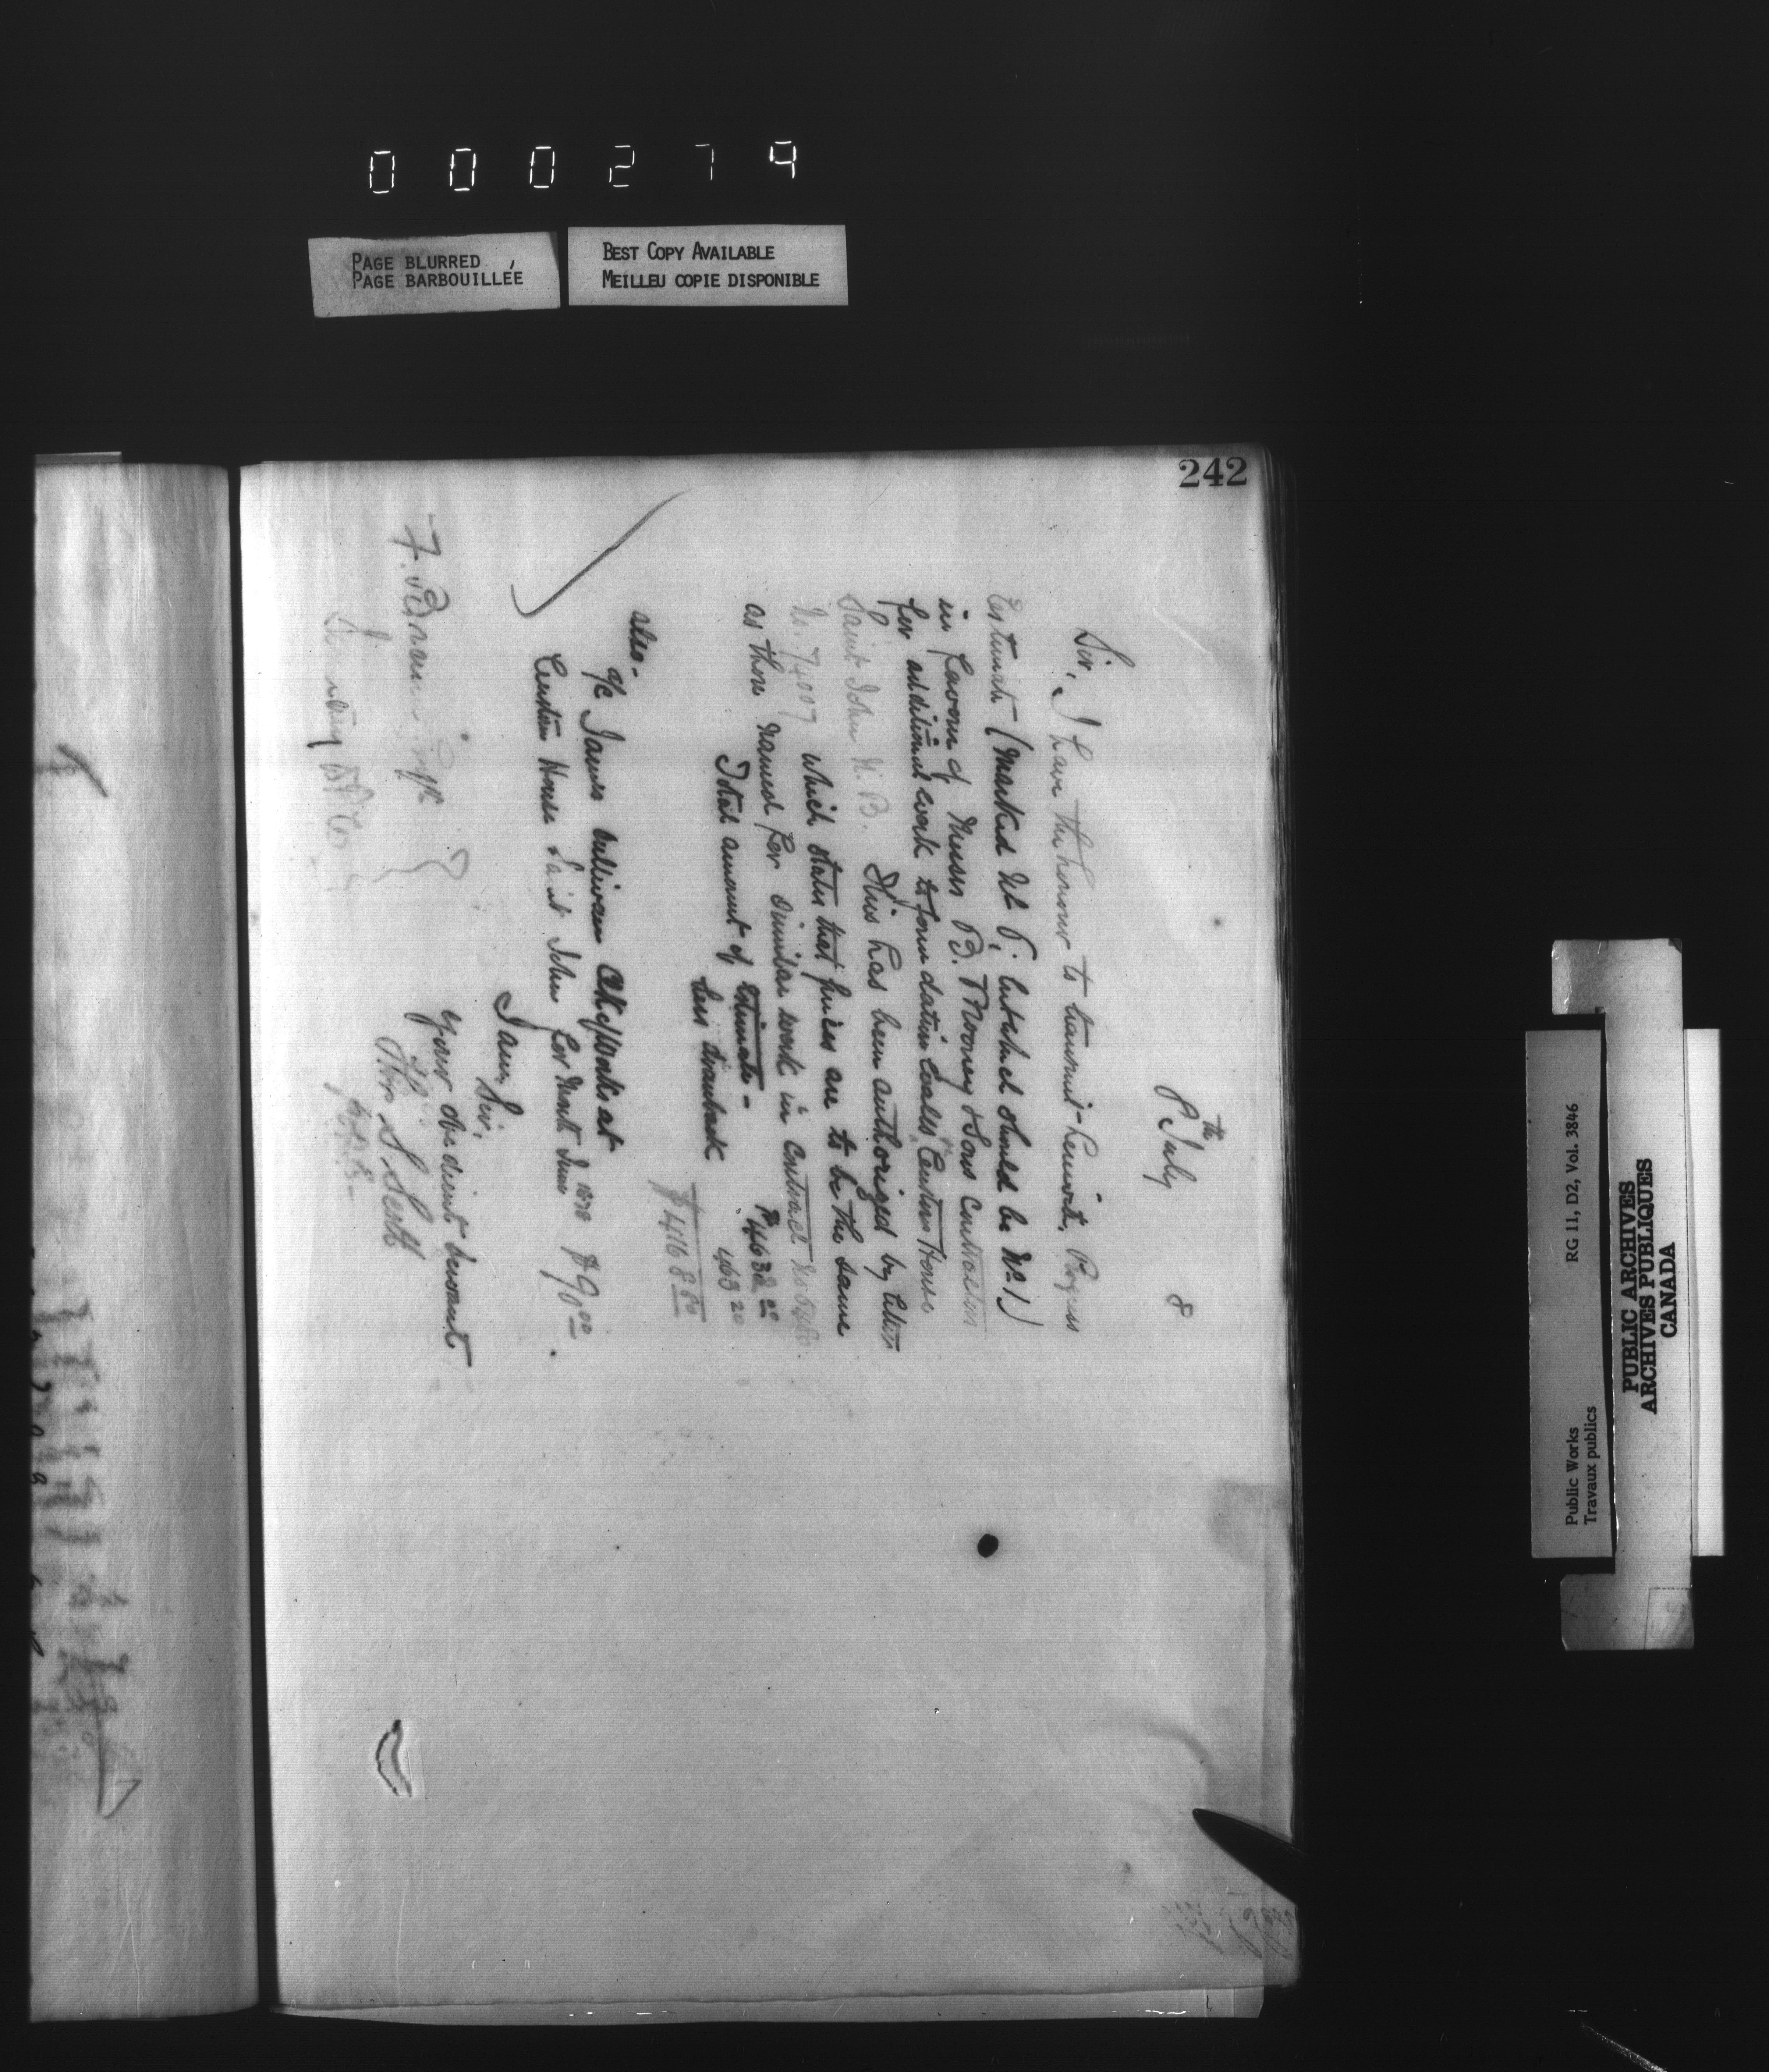 000274
PAGE BLURRED
PAGE BARBOUILLÉE
BEST COPY AVAILABLE
MEILLEU COPIE DISPONIBLE
242
8th July 8
Sir,
I have the honour to transmit herewith, Progress
Estimate (marked No 8; but should be No. 1)
in favour of Messrs B. Mooney & Sons Contractors
for additional work to foundation walls Custom House
Saint John N.B. This has been authorized by letter
No. 74007 which states that prices are to be the same
as those named for similar work in contract
Total amount of estimate - $4632 00
Less drawback 463 20
$4168 80
also -
a/c James Sullivan Ck of Works at
Custom House Saint John for Month June 1878 $90 00.
I am Sir,
Your obedient Servant
Thos S. Scott
F. Braun
Public Works
Travaux publics
RG 11, D2, Vol. 3846
PUBLIC ARCHIVES
ARCHIVES PUBLIQUES
CANADA